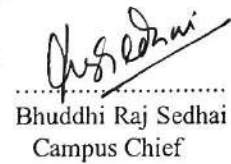 ..............................
Bhuddhi Raj Sedhai
Campus Chief